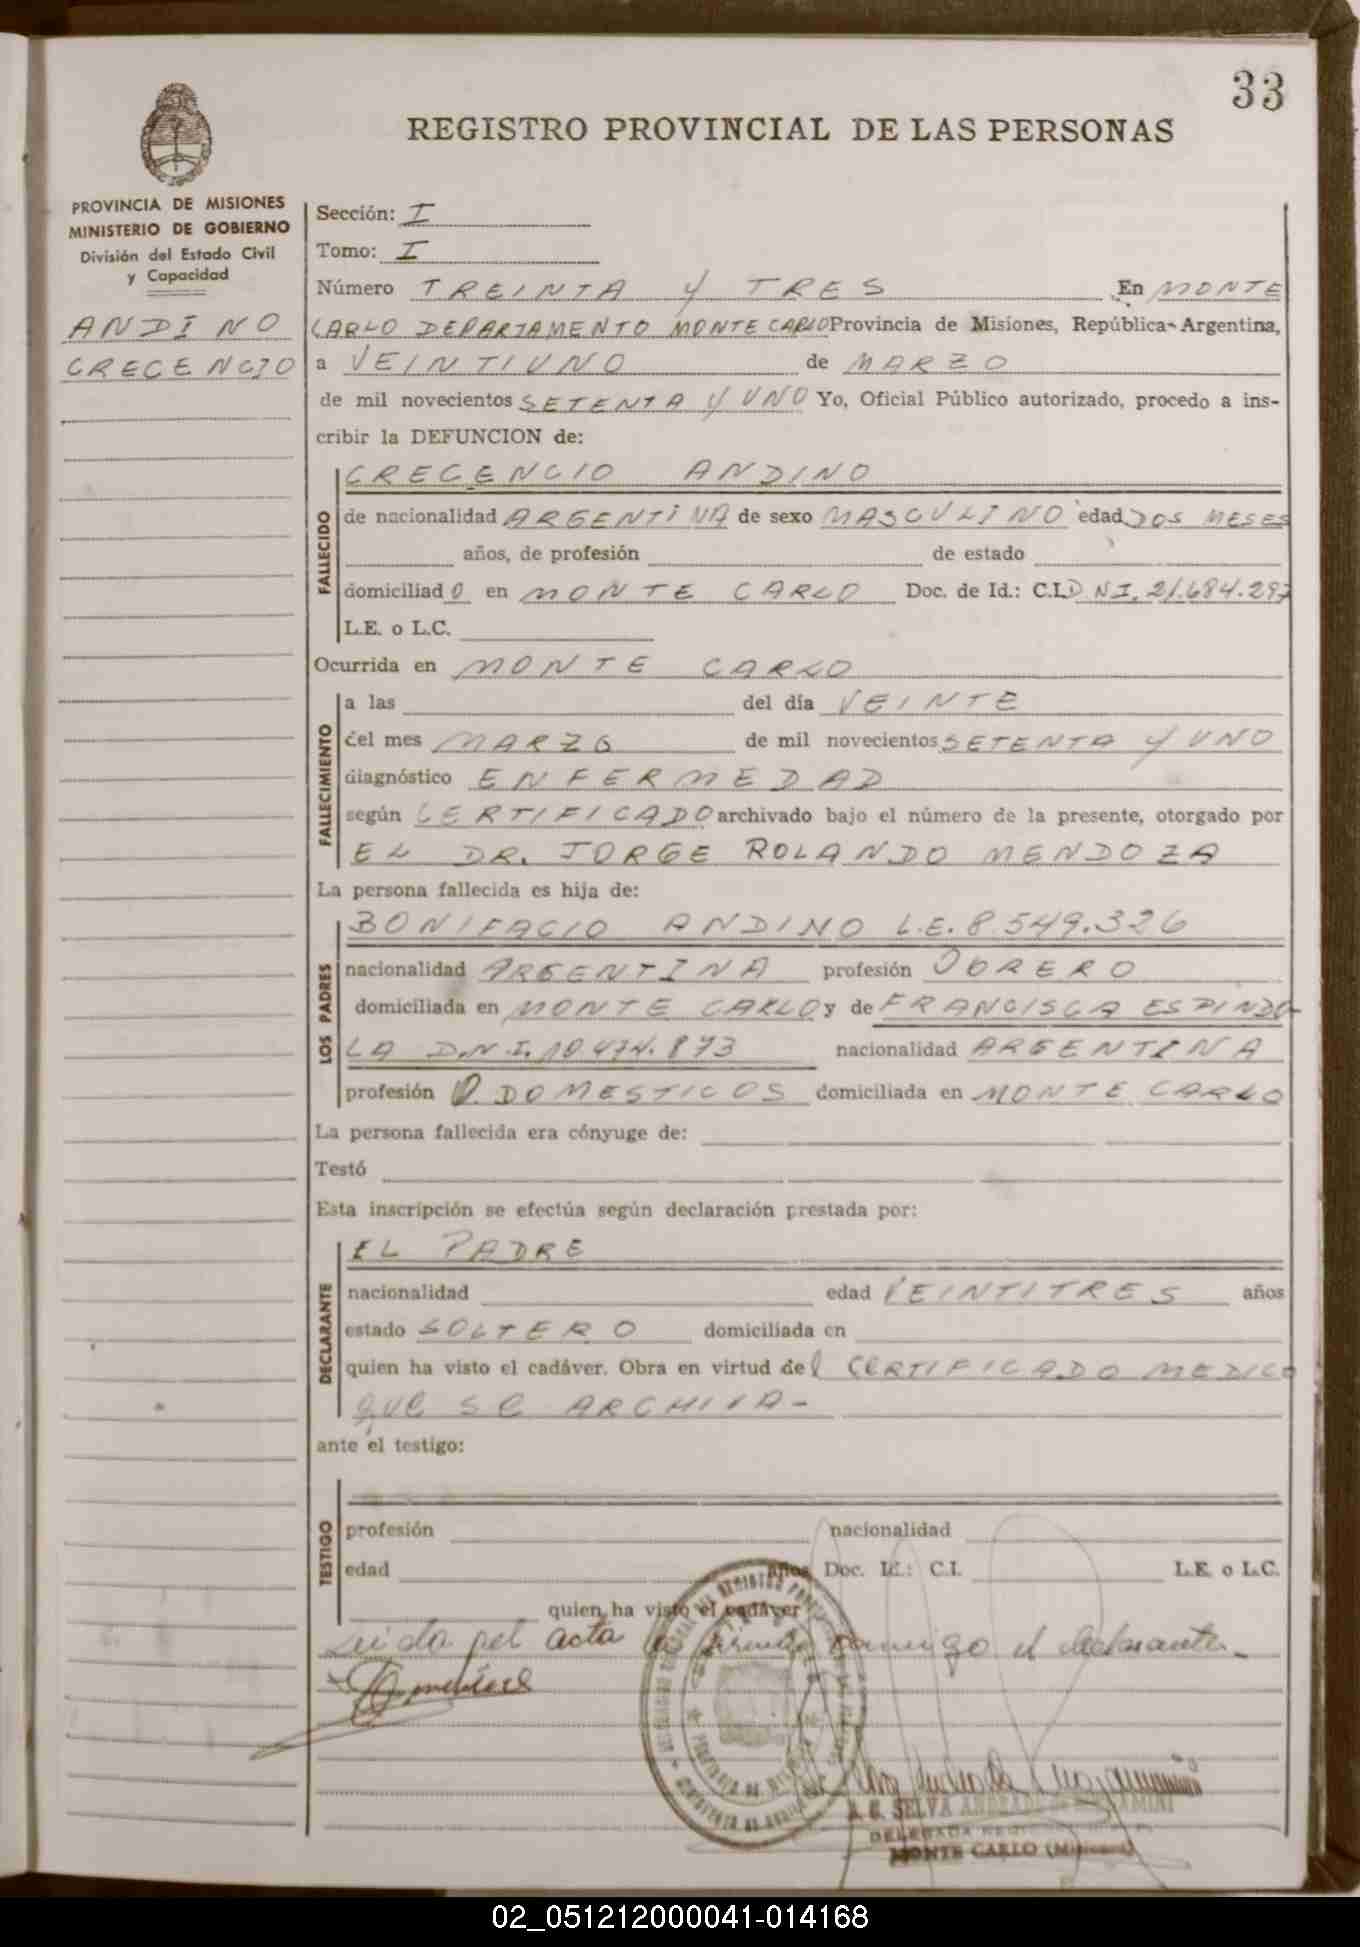 33
REGISTRO PROVINCIAL DE LAS PERSONAS
PROVINCIA DE MISIONES
MINISTERIO DE GOBIERNO
División del Estado Civil
y Capacidad
ANDINO
CRECENCIO
Sección: I
Tomo: I
Número TREINTA Y TRES En MONTE
CARLO DEPARTAMENTO MONTE CARLO Provincia de Misiones, República Argentina,
a VEINTIUNO de MARZO
de mil novecientos SETENTA Y UNO Yo, Oficial Público autorizado, procedo a ins-
cribir la DEFUNCION de:
FALLECIDO
CRECENCIO ANDINO
de nacionalidad ARGENTINA de sexo MASCULINO edad DOS MESES
años, de profesión de estado
domiciliado en MONTE CARLO Doc. de Id.: C.I. D.NI. 21.684.297
L.E. o L.C.
Ocurrida en MONTE CARLO
FALLECIMIENTO
a las del día VEINTE
del mes MARZO de mil novecientos SETENTA Y UNO
diagnóstico ENFERMEDAD
según CERTIFICADO archivado bajo el número de la presente, otorgado por
EL DR. JORGE ROLANDO MENDOZA
La persona fallecida es hija de:
LOS PADRES
BONIFACIO ANDINO L.E. 8.549.326
nacionalidad ARGENTINA profesión OBRERO
domiciliada en MONTE CARLO y de FRANCISCA ESPINDO-
LA D.N.I. 10.474.873 nacionalidad ARGENTINA
profesión Q. DOMESTICOS domiciliada en MONTE CARLO
La persona fallecida era cónyuge de:
Testó
Esta inscripción se efectúa según declaración prestada por:
DECLARANTE
EL PADRE
nacionalidad edad VEINTITRES años
estado SOLTERO domiciliada en
quien ha visto el cadáver. Obra en virtud del CERTIFICADO MEDICO
QUE SE ARCHIVA-
ante el testigo:
TESTIGO
profesión nacionalidad
edad años Doc. Id.: C.I. L.E. o L.C.
quien ha visto el cadáver
Leida el acta la conmigo el declarante.-
A. G. SELVA
DELEGADA
MONTE CARLO (Misiones)
02_051212000041-014168